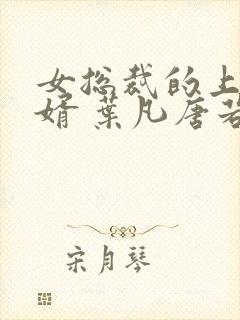 女总裁的上
婿 葉凡唐若
宋月琴